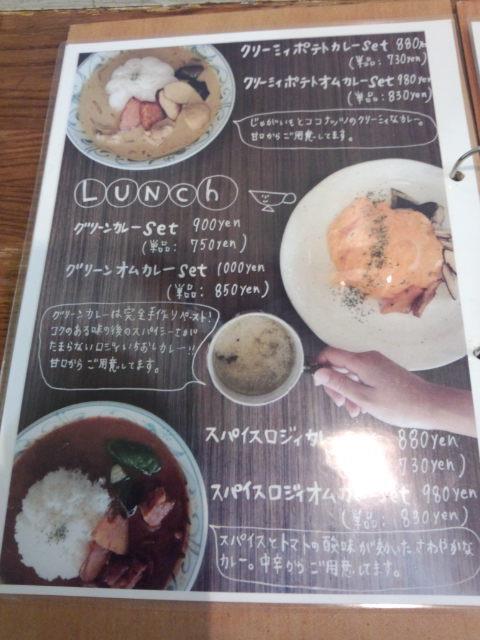 クリーミィポテトカレーset 880
(単品: 730yen)
クリーミィポテトオムカレーset 980yen
(単品: 830yen)
じゃがいもとココナッツのクリーミィなカレー。
甘口からご用意してます。
LUNCh
グリーンカレーset 900yen
(単品: 750yen)
グリーンオムカレーset 1000yen
(単品: 850yen)
グリーンカレーは完全手作りペースト!
コクのある味の後のスパイシーさが
たまらないロジィいちおしカレー!!
甘口からご用意してます。
スパイスロジィカレー 880yen
730yen)
スパイスロジィオムカレーset 980yen
(単品: 830yen)
スパイスとトマトの酸味が効いたさわやかな
カレー。中辛からご用意してます。